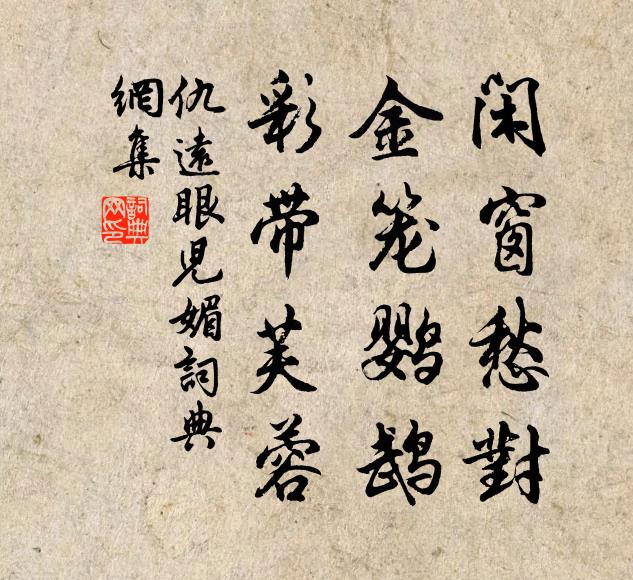 闲窗愁對
金笼鹦鹉
彩带芙蓉
仇遠眼児媚詞典
網集
詞典
网印